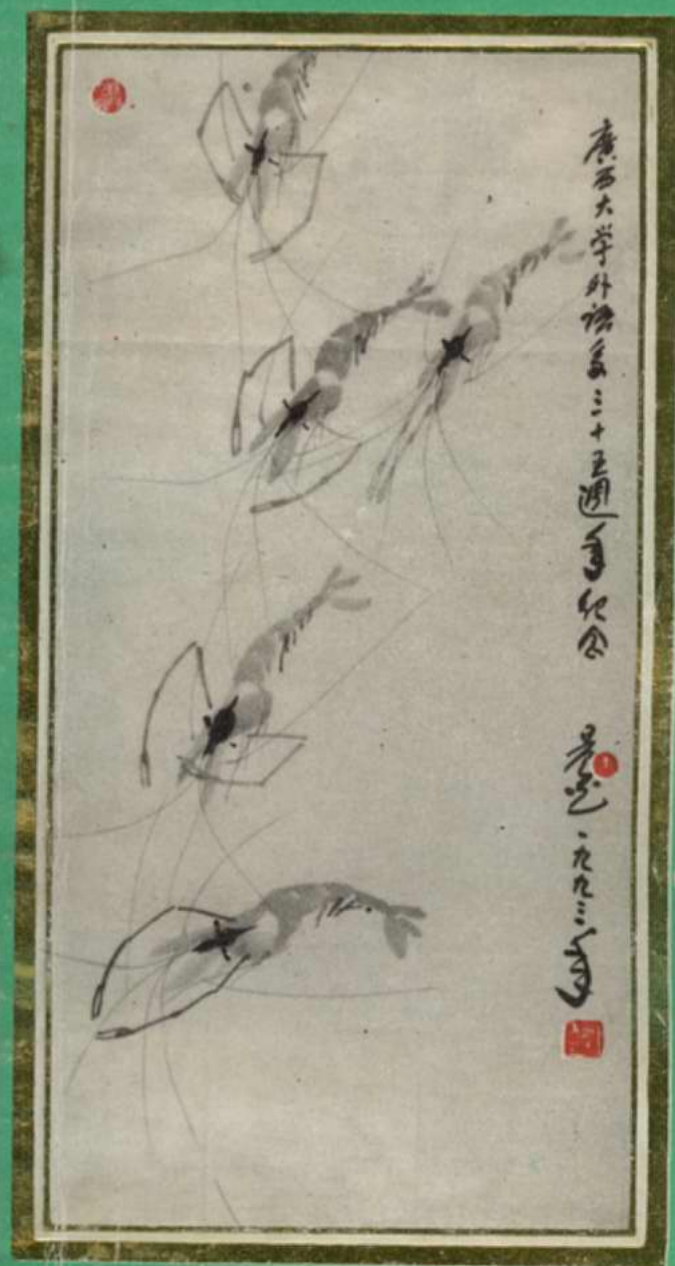 廣西大学外语系三十五週年纪念
一九九三年